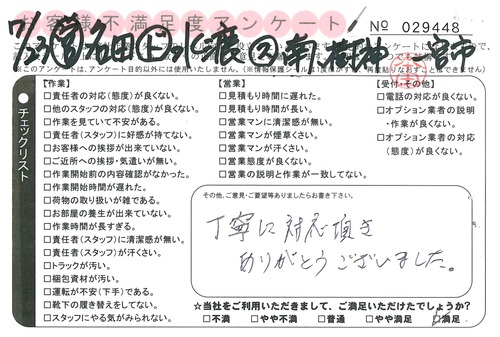 お客様不満足度アンケート
No 029448
7/23 営 名田 上 水渡 2 南 一宮市
※このアンケートは、アンケート目的以外には使用いたしません。
チェックリスト
【作業】
□責任者の対応(態度)が良くない。
□他のスタッフの対応(態度)が良くない。
□作業を見ていて不安がある。
□責任者(スタッフ)に好感が持てない。
□お客様への挨拶が出来ていない。
□ご近所への挨拶・気遣いが無い。
□作業開始前の内容確認がなかった。
□作業開始時間が遅れた。
□荷物の取り扱いが雑である。
□お部屋の養生が出来ていない。
□作業時間が長すぎる。
□責任者(スタッフ)に清潔感が無い。
□責任者(スタッフ)が汗くさい。
□トラックが汚い。
□梱包資材が汚い。
□運転が不安(下手)である。
□靴下の履き替えをしてない。
□スタッフにやる気がみられない。
【営業】
□見積もり時間に遅れた。
□見積もり時間が長い。
□営業マンに清潔感が無い。
□営業マンが煙草くさい。
□営業マンが汗くさい。
□営業態度が良くない。
□営業の説明と作業が一致してない。
【受付・その他】
□電話の対応が良くない。
□オプション業者の説明
・作業が良くない。
□オプション業者の対応
(態度)が良くない。
その他、ご意見・ご要望等ありましたらお書き下さい。
丁寧に対応頂き
ありがとうございました。
☆当社をご利用いただきまして、ご満足いただけたでしょうか?
□不満 □やや不満 □普通 □やや満足 □満足